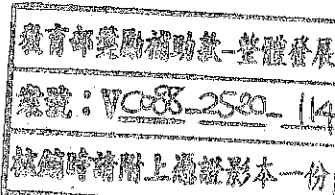 教育部獎勵補助款-整體發展
編號：VC088-2580-114
核銷時請附上海證影本一份